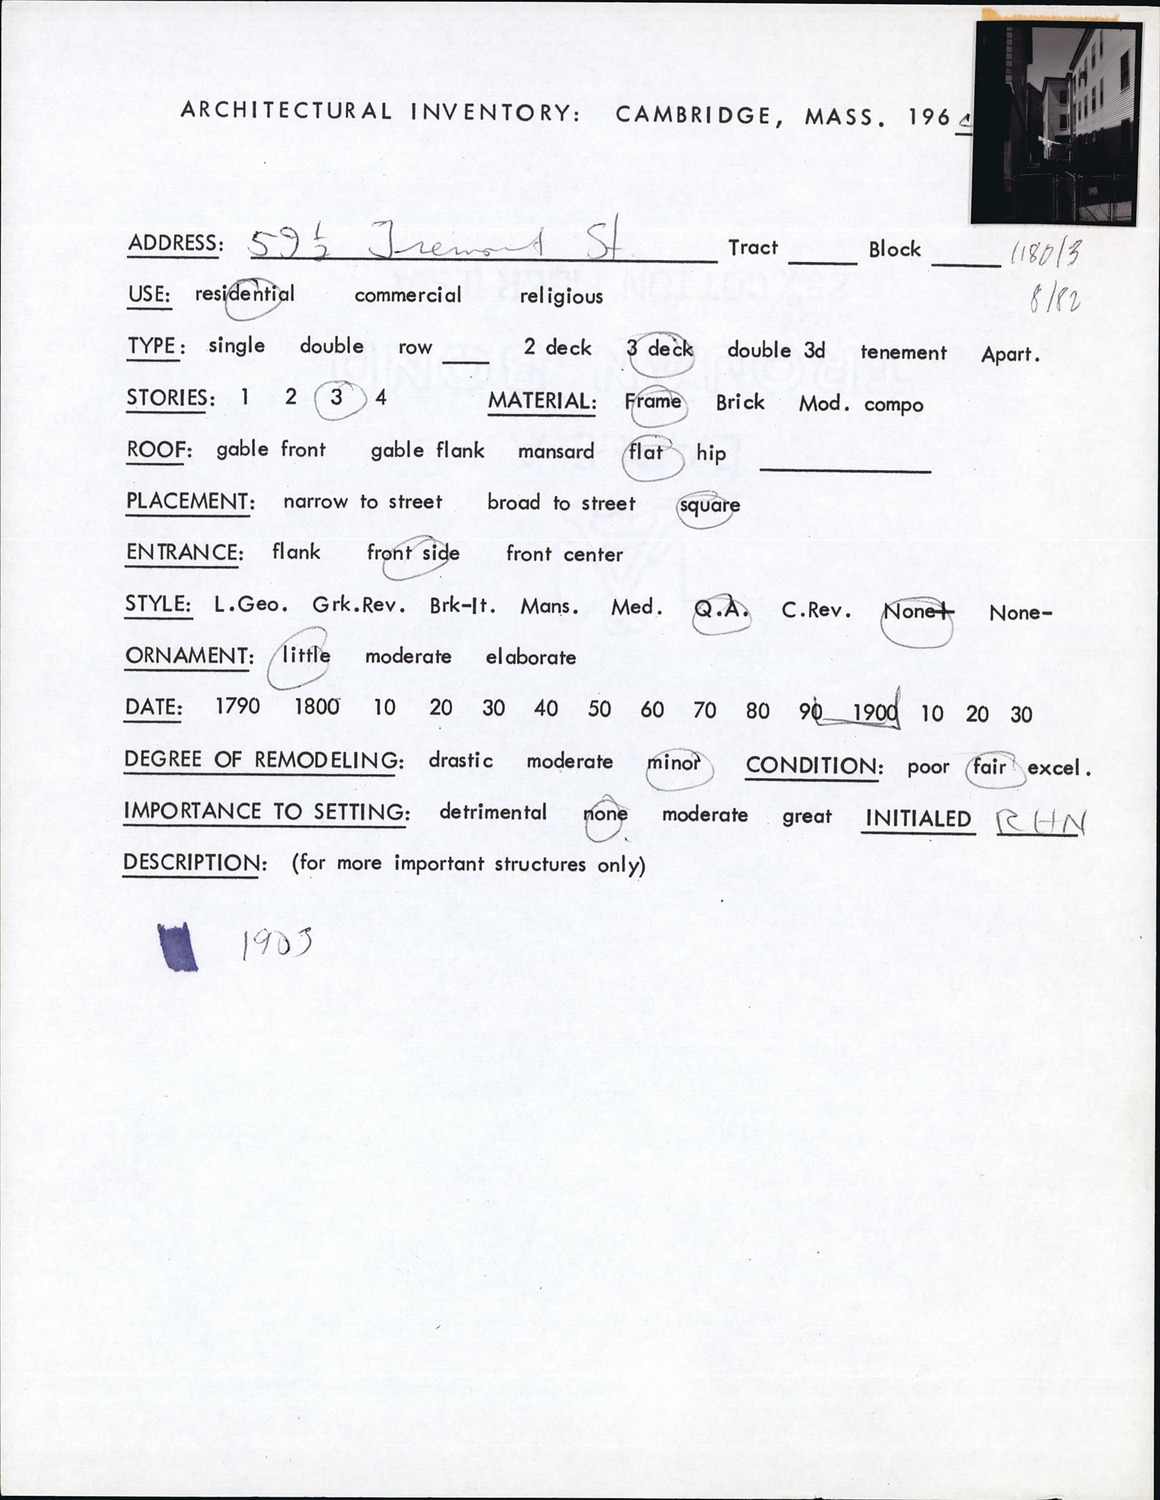 ARCHITECTURAL INVENTORY: CAMBRIDGE, MASS. 196
ADDRESS: 59½ Tremont St. Tract ____ Block ____ 1180/3
8/82
USE: residential commercial religious
TYPE: single double row ___ 2 deck 3 deck double 3d tenement Apart.
STORIES: 1 2 3 4 MATERIAL: Frame Brick Mod. compo
ROOF: gable front gable flank mansard flat hip ________
PLACEMENT: narrow to street broad to street square
ENTRANCE: flank front side front center
STYLE: L.Geo. Grk.Rev. Brk-It. Mans. Med. Q.A. C.Rev. None+ None-
ORNAMENT: little moderate elaborate
DATE: 1790 1800 10 20 30 40 50 60 70 80 90 1900 10 20 30
DEGREE OF REMODELING: drastic moderate minor CONDITION: poor fair excel.
IMPORTANCE TO SETTING: detrimental none moderate great INITIALED RHN
DESCRIPTION: (for more important structures only)
1903